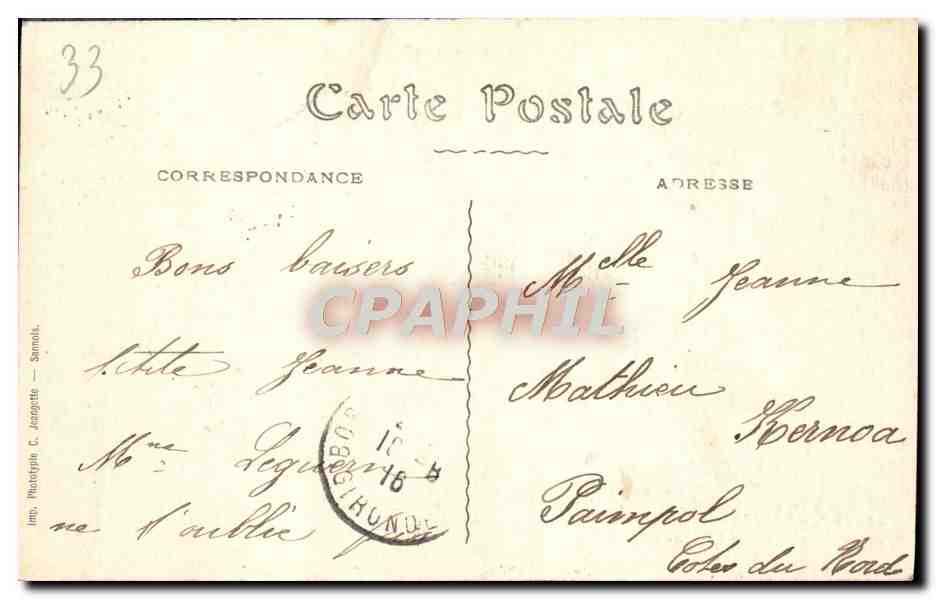 33
Carte Postale
CORRESPONDANCE
ADRESSE
Bons baisers
petite Jeanne
Mme Leguern
ne t'oublie pas
Melle Jeanne
Mathieu
Kernoa
Paimpol
Cotes du Nord
CPAPHIL
BOR
16
GIRONDE
Imp. Phototypie C. Jeangette — Sannois.